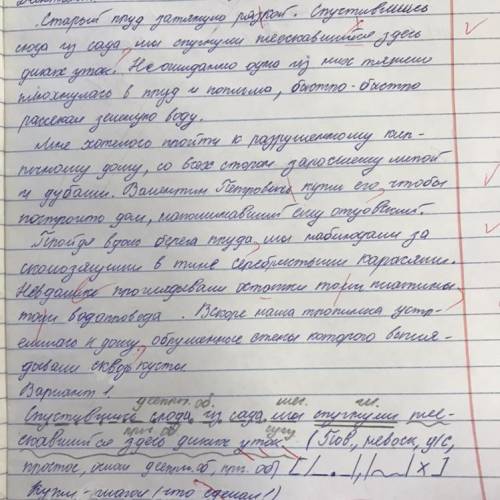 Старый пруд затянуло ряской. Спустившись
сюда из сада, мы спугнули плескавшийся здесь
диких уток. Неожиданно одна из них тяжело
плюхнулась в пруд и поплыла, быстро-быстро
рассекая зеленую воду.
Мне хотелось пройти к разрушенному кир-
пичному дому, со всех сторон заросшему липой
и дубами. Валентин Петрович купил его, чтобы
построить дом, напоминавший ему отцовский.
Пройдя вдоль берега пруда, мы наблюдали за
скользящими в тине серебристыми карасями.
Невдалеке проглядывали остатки то ли плотины
то ли водопровода. Вскоре наша тропинка устре-
милась к дому, обрушенные стены которого выгля-
дывали сквозь кусты
Вариант 1.
дееприч. об. мес. гл.
Спустившись сюда из сада, мы спугнули пле-
прич. об сущ
скавшийся здесь диких уток (Пов, невоск, д/с,
простое, ослож дееприч. об, прич. об)
Купил - глагол (что сделал?)